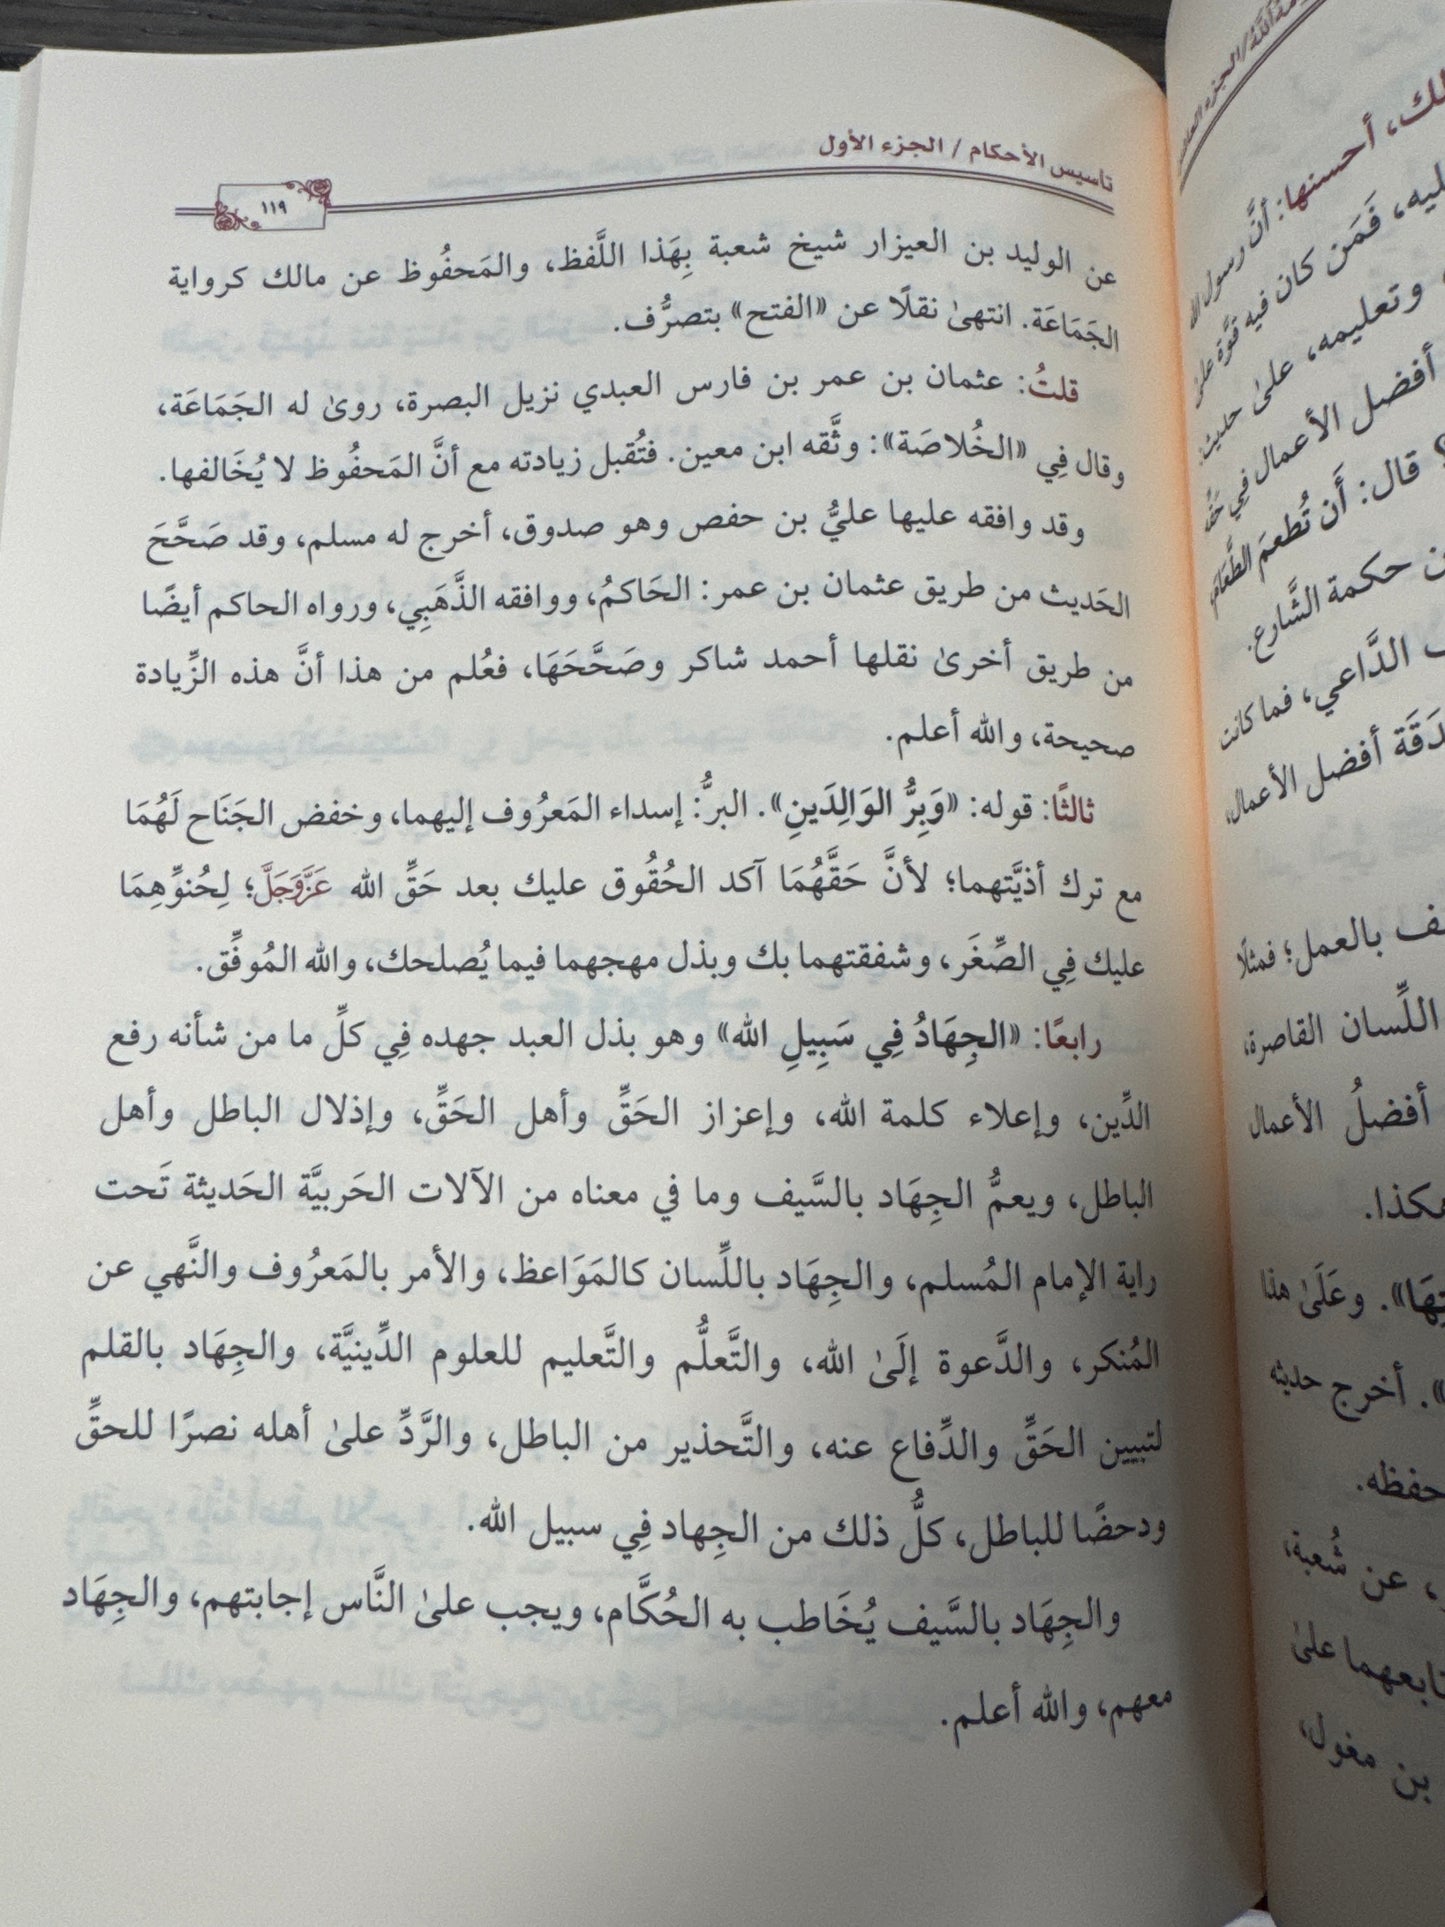 تأسيس الأحكام / الجزء الأول
١١٩
عن الوليد بن العيزار شيخ شعبة بِهَذا اللَّفظ، والمَحفُوظ عن مالك كرواية
الجَمَاعَة. انتهىٰ نقلًا عن «الفتح» بتصرُّف.
قلتُ: عثمان بن عمر بن فارس العبدي نزيل البصرة، روىٰ له الجَمَاعَة،
وقال فِي «الخُلاصَة»: وثَّقه ابن معين. فتُقبل زيادته مع أنَّ المَحفُوظ لا يُخَالفها.
وقد وافقه عليها عليُّ بن حفص وهو صدوق، أخرج له مسلم، وقد صَحَّحَ
الحَديث من طريق عثمان بن عمر: الحَاكمُ، ووافقه الذَّهَبِي، ورواه الحاكم أيضًا
من طريق أخرىٰ نقلها أحمد شاكر وصَحَّحَهَا، فعُلم من هذا أنَّ هذه الزِّيادة
صحيحة، والله أعلم.
ثالثًا: قوله: «وَبِرُّ الوَالِدَينِ». البرُّ: إسداء المَعرُوف إليهما، وخفض الجَنَاح لَهُمَا
مع ترك أذيَّتهما؛ لأنَّ حَقَّهُمَا آكد الحُقُوق عليك بعد حَقِّ الله عَزَّوَجَلَّ؛ لِحُنوِّهِمَا
عليك فِي الصِّغَر، وشفقتهما بك وبذل مهجهما فيما يُصلحك، والله المُوفِّق.
رابعًا: «الجِهَادُ فِي سَبِيلِ الله» وهو بذل العبد جهده فِي كلِّ ما من شأنه رفع
الدِّين، وإعلاء كلمة الله، وإعزاز الحَقِّ وأهل الحَقِّ، وإذلال الباطل وأهل
الباطل، ويعمُّ الجِهَاد بالسَّيف وما في معناه من الآلات الحَربيَّة الحَديثة تَحت
راية الإمام المُسلم، والجِهَاد باللِّسان كالمَوَاعظ، والأمر بالمَعرُوف والنَّهي عن
المُنكر، والدَّعوة إلَىٰ الله، والتَّعلُّم والتَّعليم للعلوم الدِّينيَّة، والجِهَاد بالقلم
لتبيين الحَقِّ والدِّفاع عنه، والتَّحذير من الباطل، والرَّدِّ علىٰ أهله نصرًا للحقِّ
ودحضًا للباطل، كلُّ ذلك من الجِهاد فِي سبيل الله.
والجِهَاد بالسَّيف يُخَاطب به الحُكَّام، ويجب علىٰ النَّاس إجابتهم، والجِهَاد
معهم، والله أعلم.
أحسنها: أنَّ رسول الله
فَمَن كان فيه قوَّة علىٰ
وتعليمه، علىٰ حديث
أفضل الأعمال فِي
قال: أَن تُطعمَ الطَّعَامَ،
حكمة الشَّارع.
الدَّاعي، فما كانت
أفضل الأعمال،
بالعمل؛ فمثلًا
اللِّسان القاصرة،
أفضلُ الأعمال
هكذا.
وعَلَىٰ هذا
أخرج حديثه
حفظه.
عن شُعبة،
تابعهما علىٰ
بن مغول،